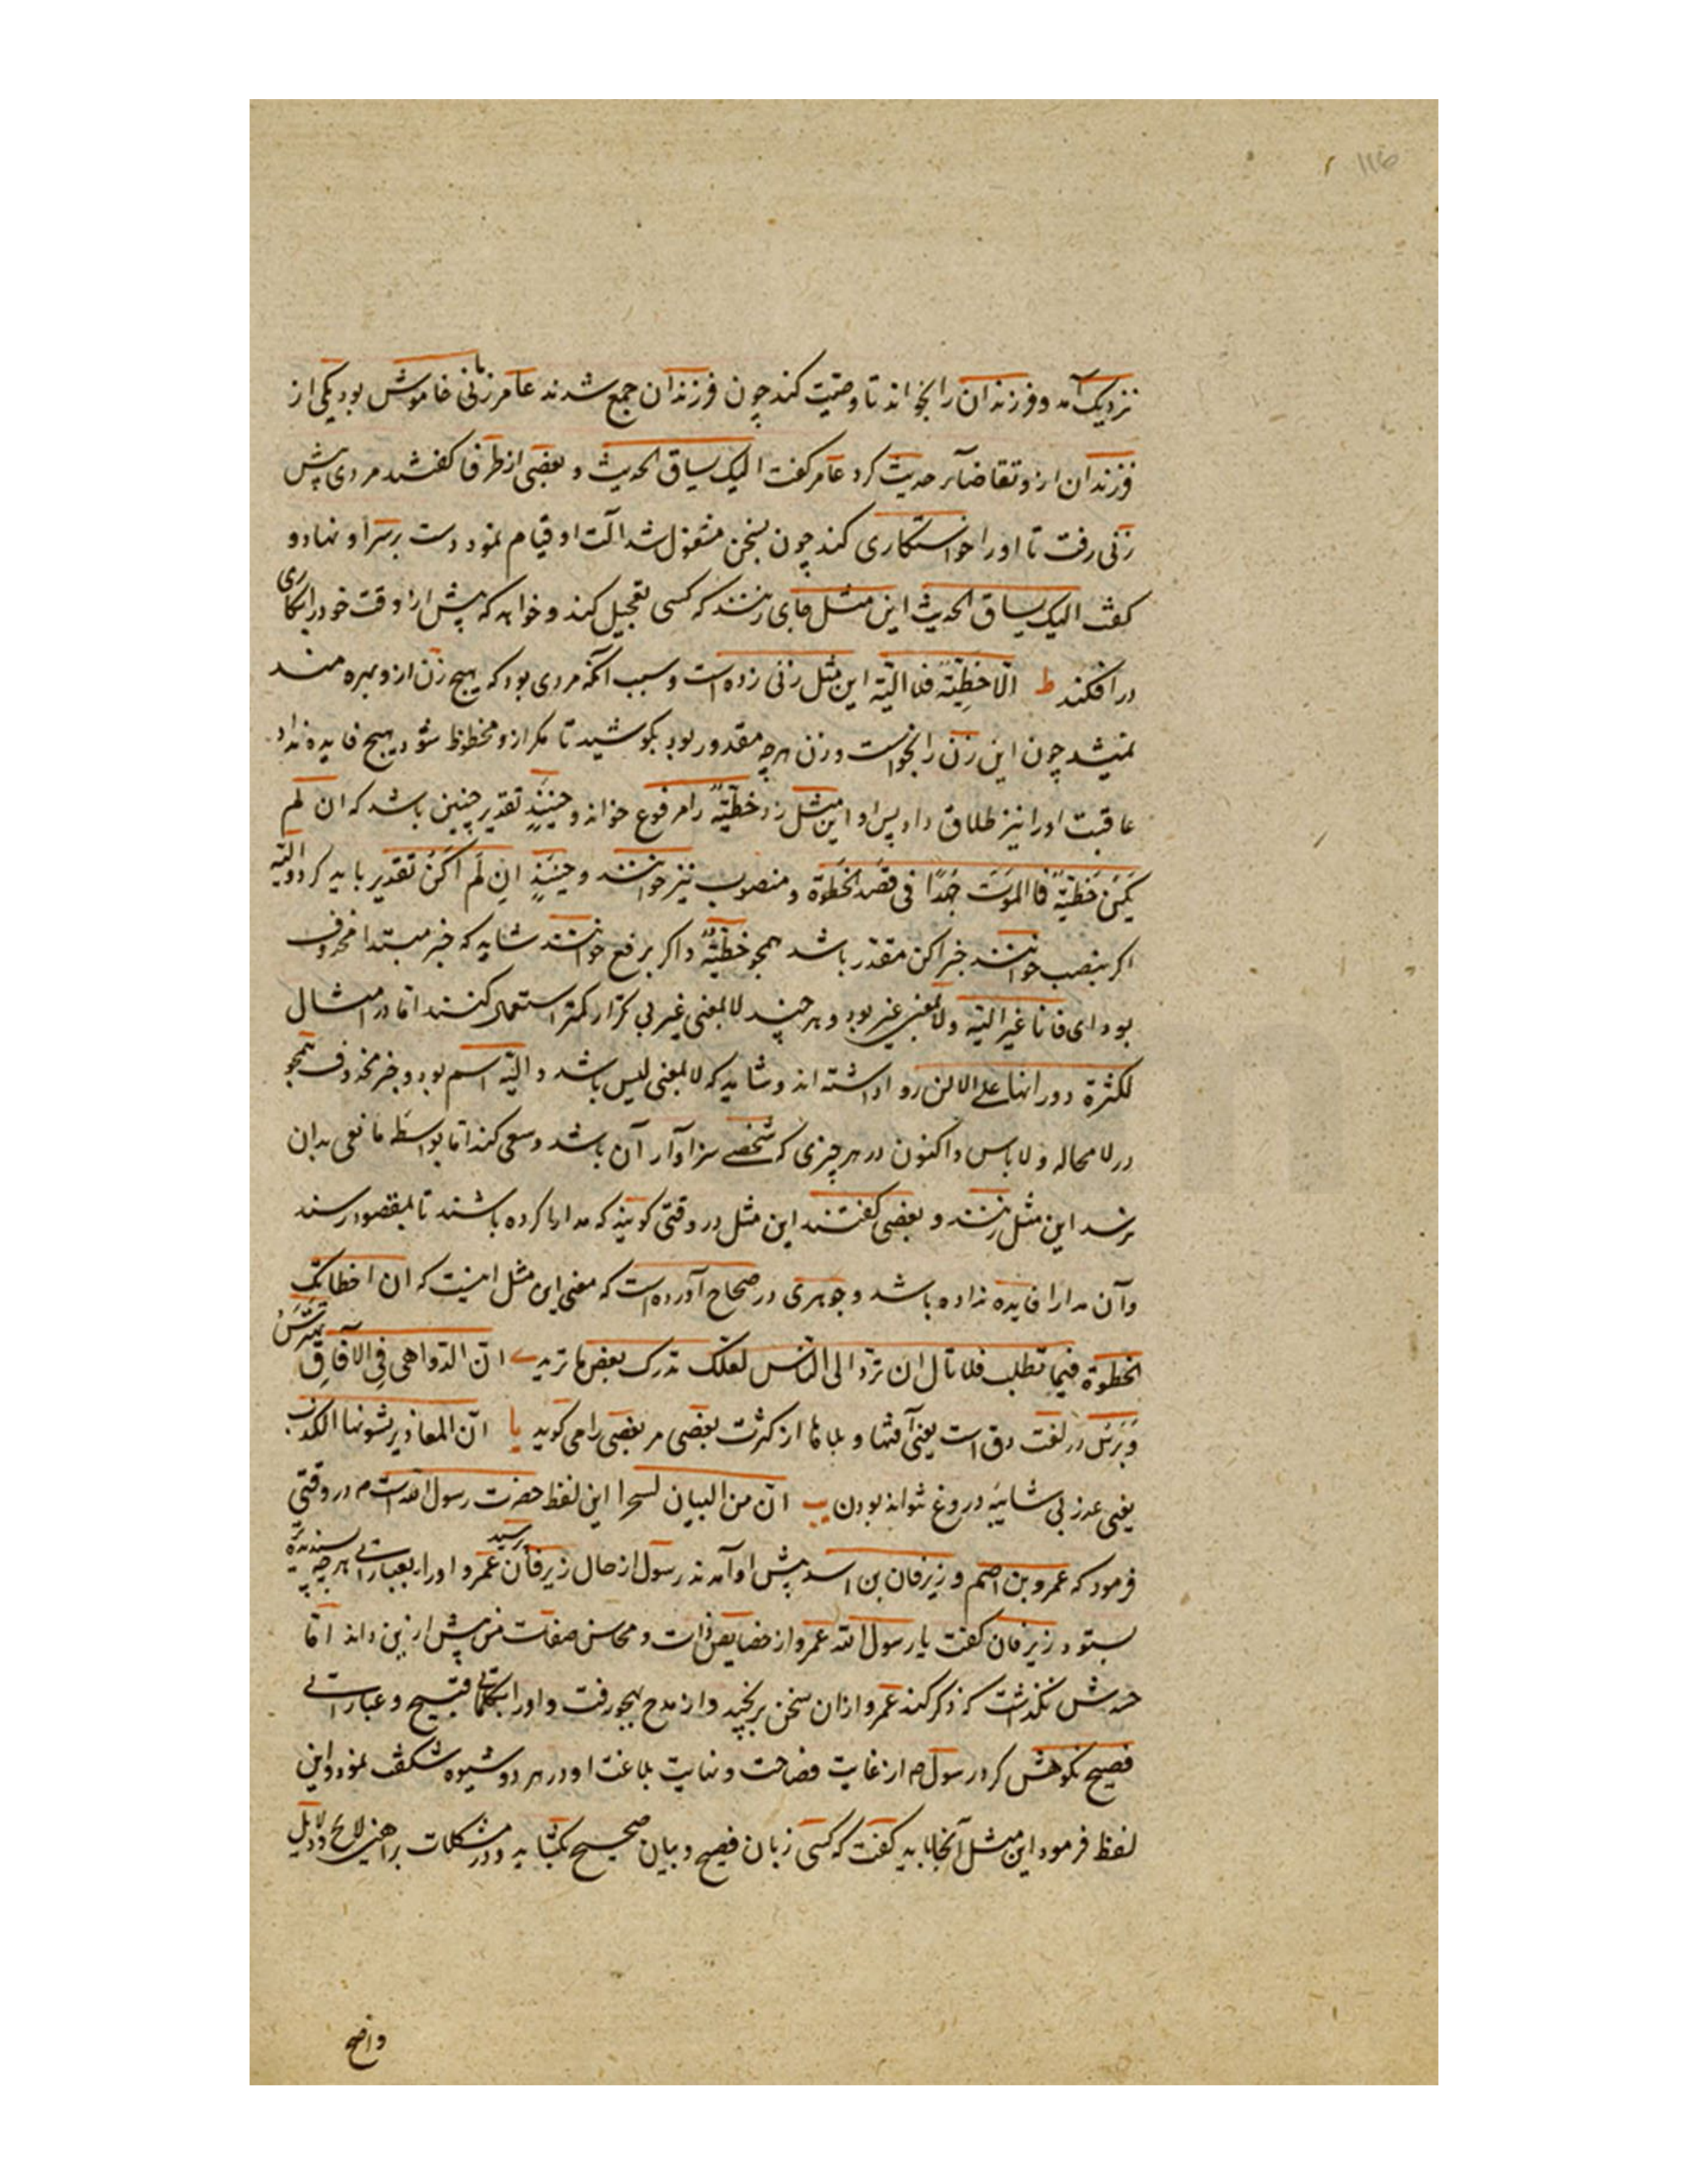 نزدیک آمد و فرزندان را بخواند تا وصیّت کند چون فرزندان جمع شدند عامر زمانی خاموش بود یکی از
فرزندان ازو تقاضاء حدیث کرد عامر گفت الیک یساق الحدیث و بعضی از ظرفا گفتند مردی پیش
زنی رفت تا او را خواستکاری کند چون بسخن مشغول شد آلت او قیام نمود دست بر سر او نهاد و
گفت الیک یساق الحدیث این مثل جای زنند که کسی تعجیل کند و خواهد که پیش از وقت خود را بکاری
در افکند ط الّا حَظِیّة فلا الیّة این مثل زنی زده است و سبب آنکه مردی بود که هیچ زن ازو بهره مند
نمیشد چون این زن را بخواست و زن هر چه مقدور بود بکوشید تا مکر ازو محظوظ شود هیچ فایده نداد
عاقبت او را نیز طلاق داد پس او این مثل زد حظیّةٌ را مرفوع خواند و حینئذٍ تقدیر چنین باشد که ان لم
یکن حَظیّةٌ فاالموت جهدًا فی قصد الخطوة و منصوب نیز خوانند و حینئذٍ ان لَم اَکُن تقدیر باید کرد و الیّه
اگر بنصب خوانند خبر اکن مقدّر باشد همجو حظیّةً و اگر برفع خوانند شاید که خبر مبتدا محذوف
بود ای فانا غیر الیّه ولا بمعنی غیر بود و هر چند لا بمعنی غیر بی تکرار کمتر استعمال کنند امّا در امثال
لکثرة دورانها علی الالسن روا داشته اند و شاید که لا بمعنی لیس باشد و الیّه اسم بود و خبر محذوف همجو
در لا محاله و لا باس و اکنون در هر چیزی که شخصی سزاوار آن باشد و سعی کند امّا بواسطه مانعی بدان
نرسد این مثل زنند و بعضی گفتند این مثل در وقتی گویند که مدارا کرده باشند تا بمقصود رسند
و آن مدارا فایده نداده باشد و جوهری در صحاح آورده است که معنی این مثل اینست که ان اخطاتک
الخطوة فیما تطلب فلا تال ان تردّ الی الناس لعلک تدرک بعض ما ترید ی انّ الدّواهی فی الآفاق تهترس
و هرس در لغت دق است یعنی آفتها و بلاها از کثرت بعضی مر بعضی را می کوبد یا انّ المعاذیر یشوبها الکذب
یعنی عذر بی شایبه دروغ نتواند بودن یب انّ من البیان لسحرا این لفظ حضرت رسول الله است م در وقتی
فرمود که عمرو بن اصم و زبرقان بن اسد پیش او آمدند رسول از حال زبرقان پرسید عمرو او را بعباراتی هر چه پسندیده تر
بستود زبرقان گفت یا رسول الله عمرو از خصایص ذات و محاسن صفات من بیش ازین داند امّا
حسدش نکذاشت که ذکر کند عمرو ازان سخن برنجید و از مدح بهجو رفت و او را بکلماتی قبیح و عباراتی
فصیح نکوهش کرد رسول م از غایت فصاحت و نهایت بلاغت او در هر دو شیوه شکفت نمود و این
لفظ فرمود این مثل آنجا باید گفت که کسی زبان فصیح و بیان صحیح بکشاید و در مشکلات براهین لایح و دلایل
واضح